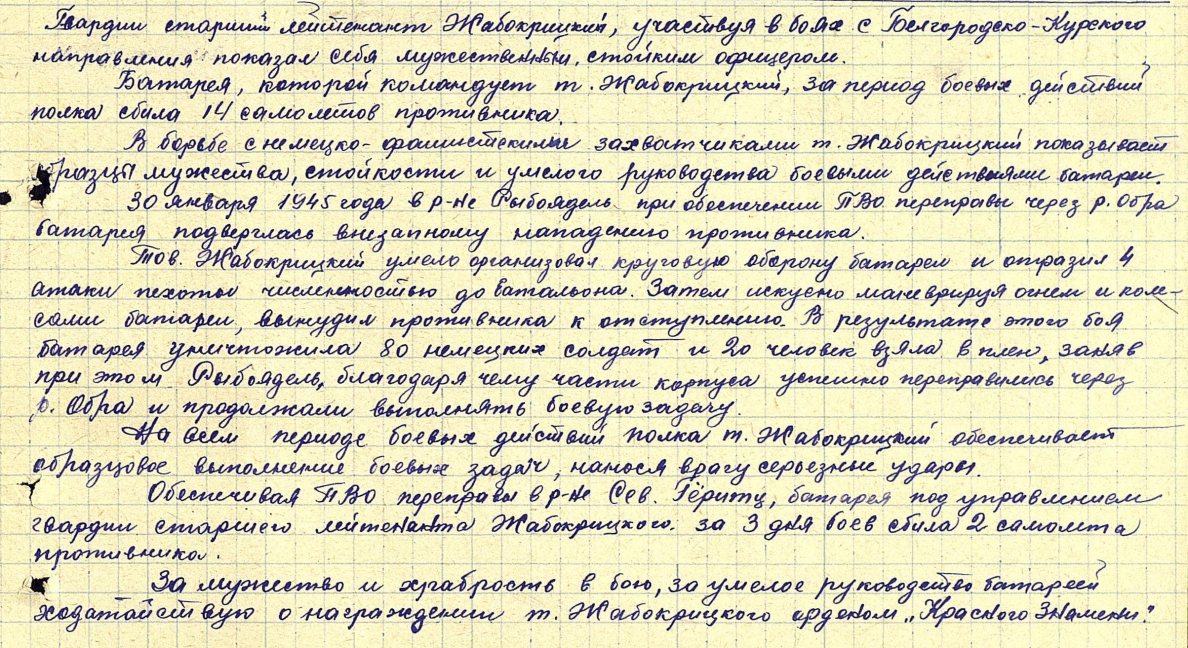 Гвардии старший лейтенант Жабокрицкий, участвуя в боях с Белгородско-Курского
направления показал себя мужественным, стойким офицером.
Батарея, которой командует т. Жабокрицкий, за период боевых действий
полка сбила 14 самолетов противника.
В борьбе с немецко-фашистскими захватчиками т. Жабокрицкий показывает
образцы мужества, стойкости и умелого руководства боевыми действиями батареи.
30 января 1945 года в р-не Рыбоядель при обеспечении ПВО переправы через р. Обра
батарея подверглась внезапному нападению противника.
Тов. Жабокрицкий умело организовал круговую оборону батареи и отразил 4
атаки пехоты численностью до батальона. Затем искусно маневрируя огнем и коле-
сами батареи, вынудил противника к отступлению. В результате этого боя
батарея уничтожила 80 немецких солдат и 20 человек взяла в плен, заняв
при этом Рыбоядель, благодаря чему части корпуса успешно переправились через
р. Обра и продолжали выполнять боевую задачу.
На всем периоде боевых действий полка т. Жабокрицкий обеспечивает
образцовое выполнение боевых задач, нанося врагу серьезные удары.
Обеспечивая ПВО переправы в р-не Сев. Гёритц, батарея под управлением
гвардии старшего лейтенанта Жабокрицкого за 3 дня боев сбила 2 самолета
противника.
За мужество и храбрость в бою, за умелое руководство батареей
ходатайствую о награждении т. Жабокрицкого орденом „Красного Знамени".